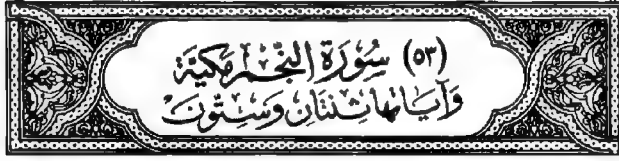 (٥٣) سُورَةُ النَّجْمِ مَكِّيَّة
وَآيَاتُهَا ثِنْتَانِ وَسِتُّونَ